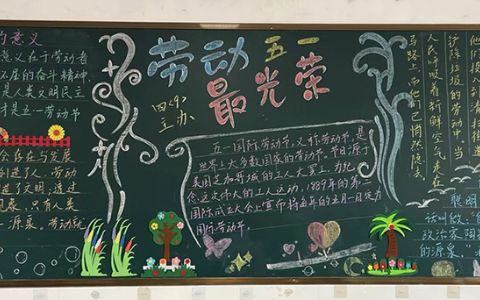 的意义
意义在于劳动者
不屈的奋斗精神,
是人类文明民主
才是五一劳动节
会存在与发展
创造了人,劳动
进了文明;通过
只有人类
源泉,劳动就
劳动五一
最光荣
四<9>
主办
五一国际劳动节,又称劳动节,是
世界上大多数国家的劳动节。节日源于
美国芝加哥城的工人大罢工。为纪
念这次伟大的工人运动,1889年的第二
国际成立大会上宣布将每年的五月一日定为
国际劳动节。
铲除垃圾的劳动中,当
人民呼吸着新鲜空气走在
马路上,而他们已悄然隐去。
聪明
话叫做
政治家
的源泉,